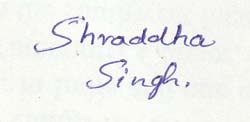 Shraddha
Singh.